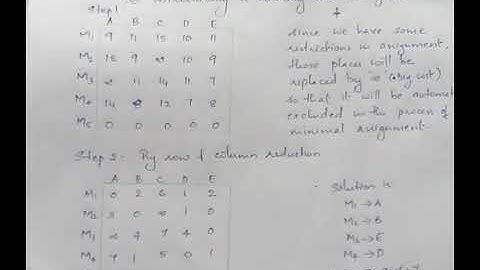 Step 1
A B C D E
M1 9 11 15 10 11
M2 12 9 ∞ 10 9
M3 ∞ 11 14 11 7
M4 14 8 12 7 8
M5 0 0 0 0 0
since we have some
restrictions in assignment,
those places will be
replaced by '∞' (big cost)
so that it will be automat
excluded in the process of
minimal assignment.
Step 2: By row & column reduction
A B C D E
M1 0 2 6 1 2
M2 3 0 ∞ 1 0
M3 ∞ 4 7 4 0
M4 7 1 5 0 1
Solution is
M1 → A
M2 → B
M3 → E
M4 → D